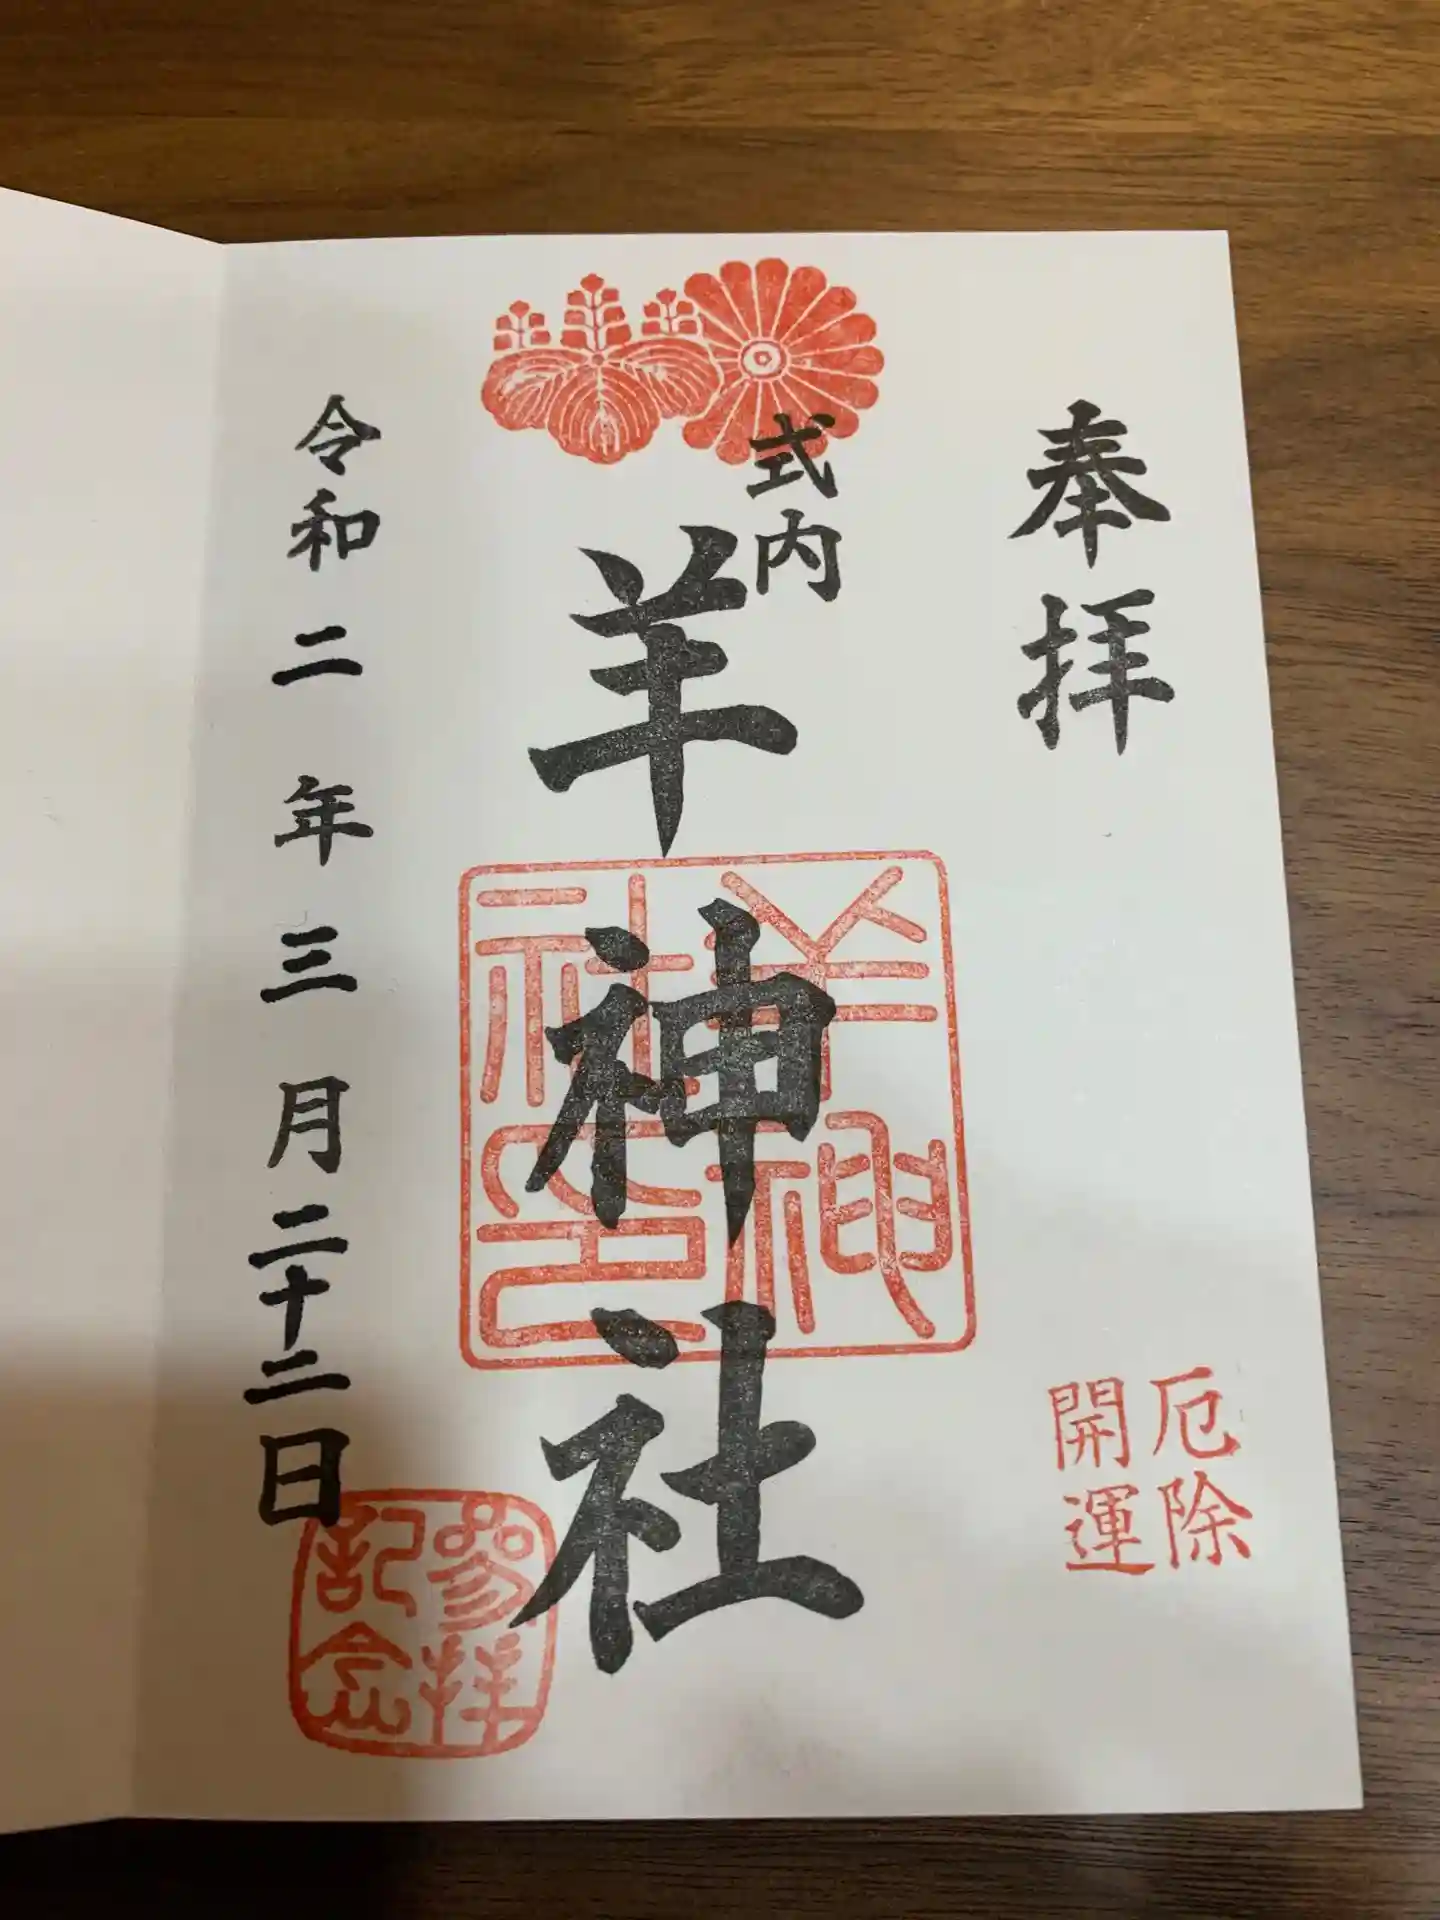 奉拝
厄除
開運
式内
羊神社
羊神
社印
令和二年三月二十二日
参拝
記念